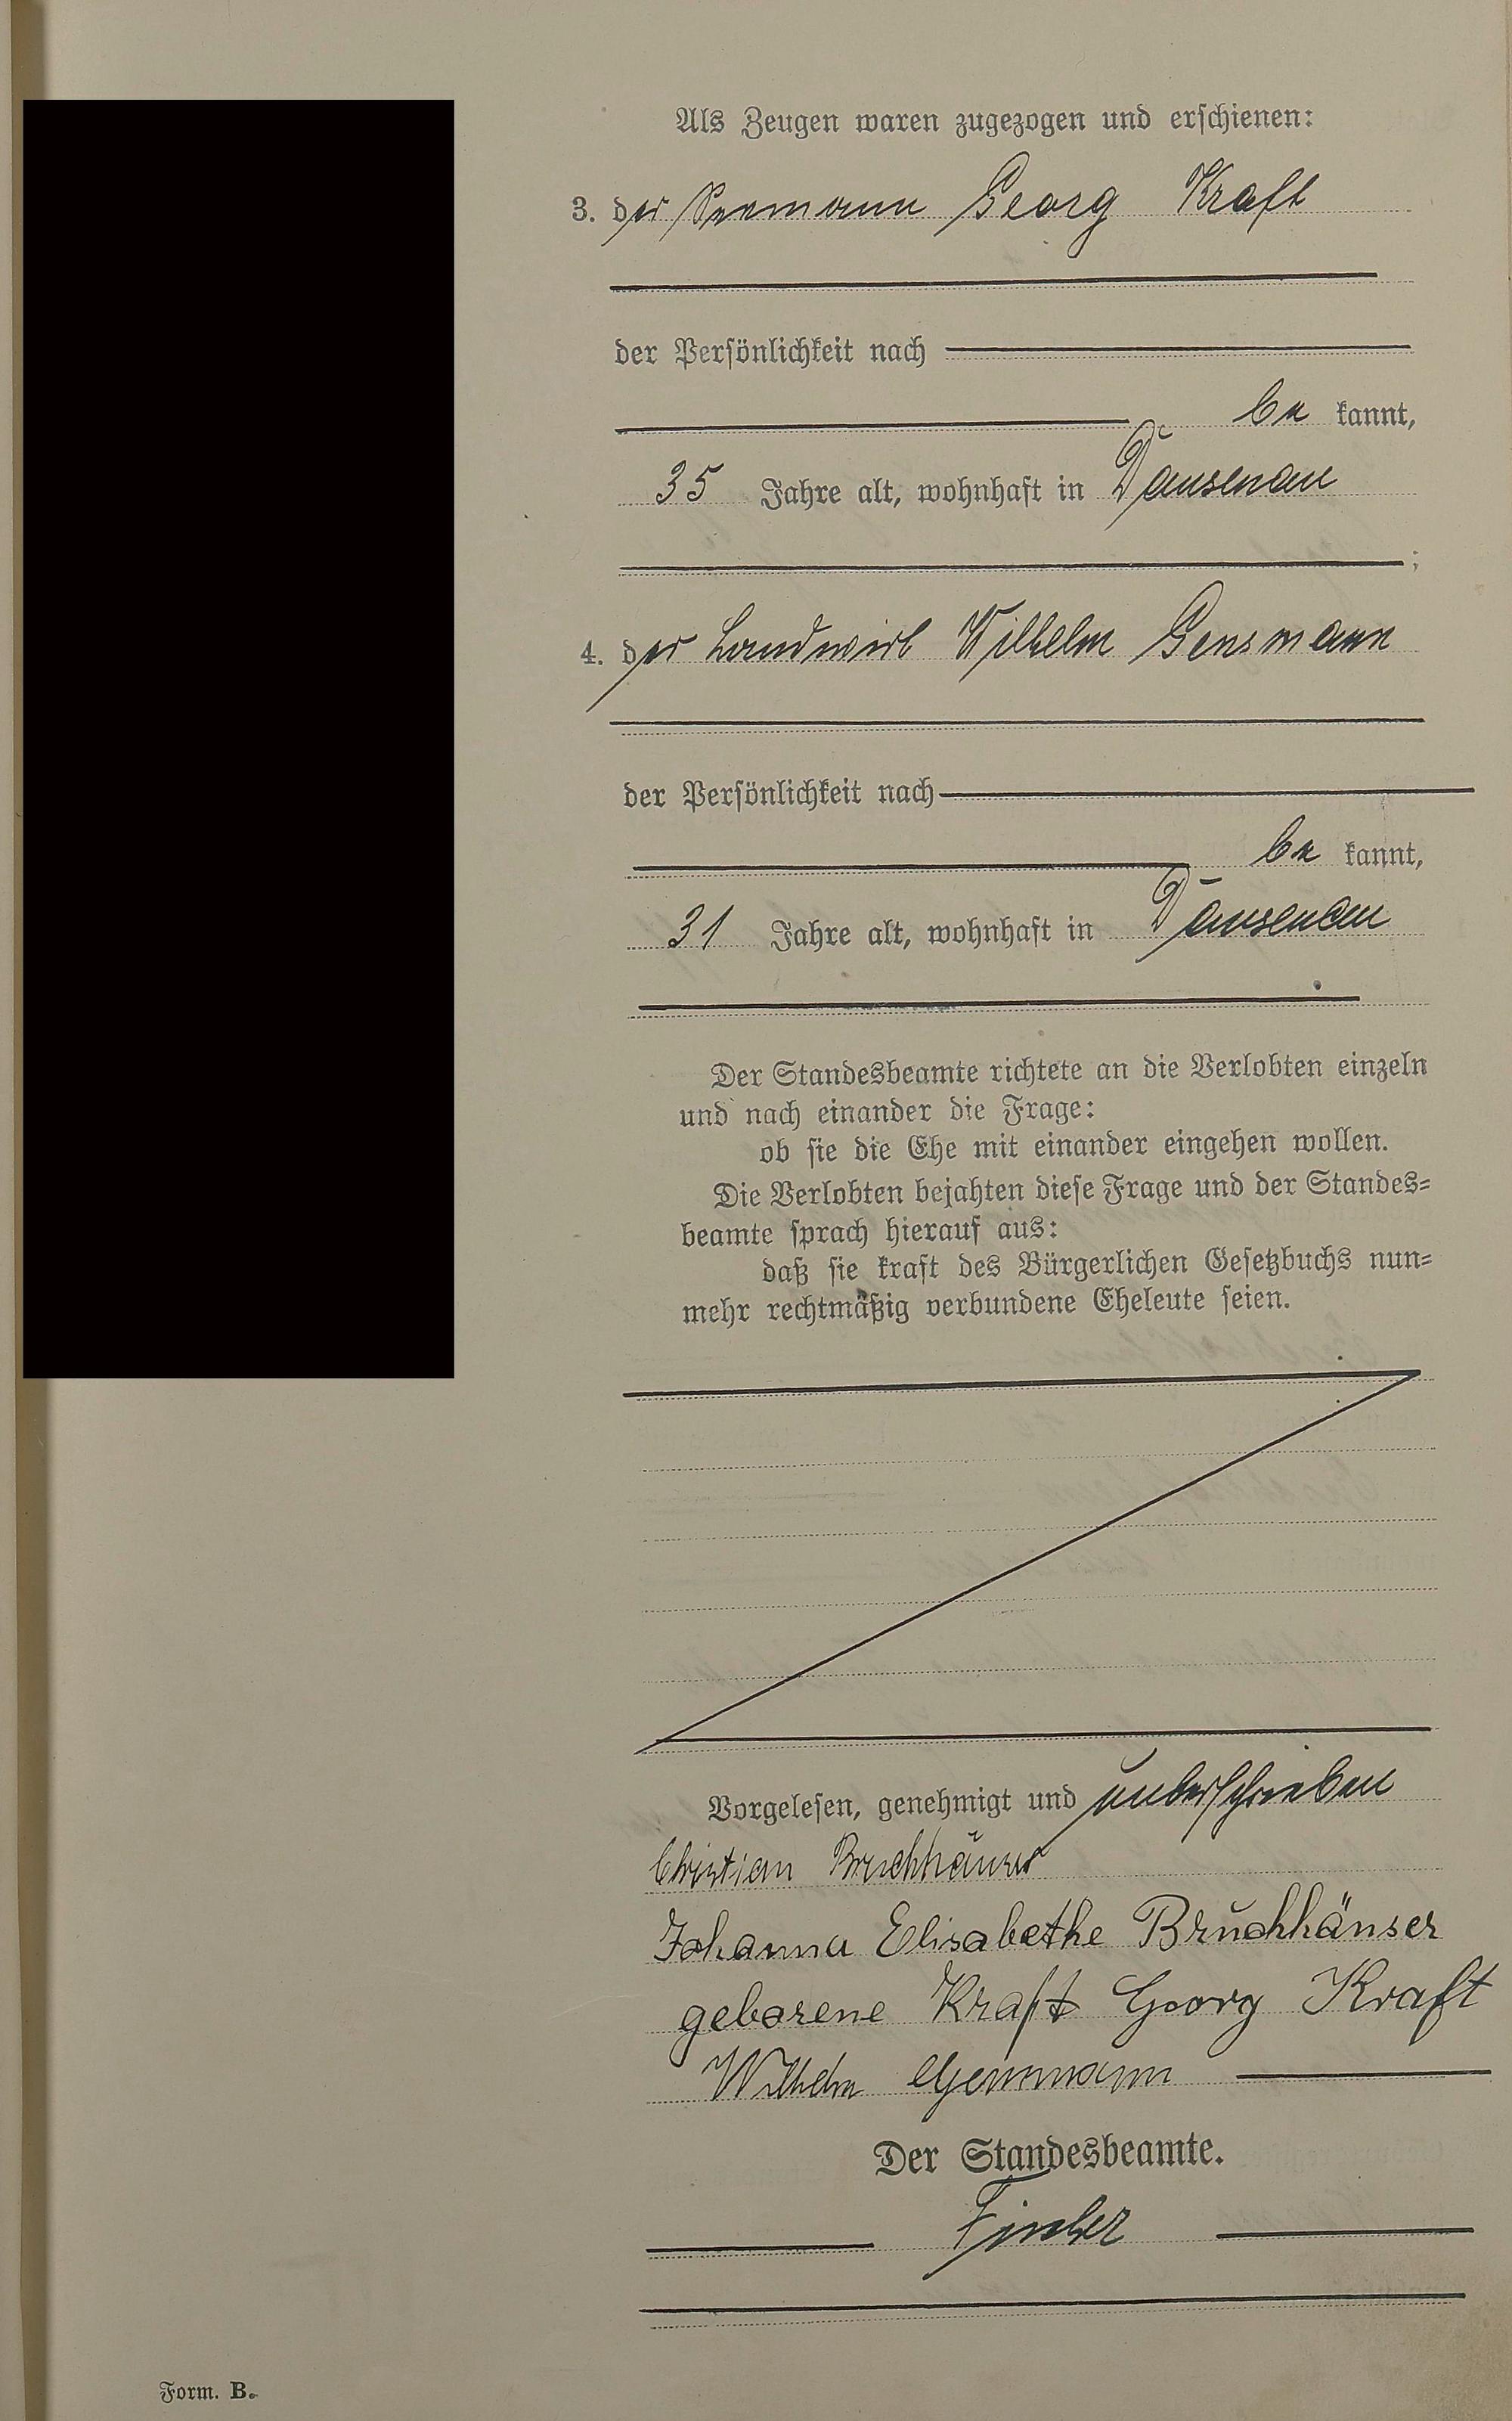 Als Zeugen waren zugezogen und erschienen:
3. der Georg Kraft
der Persönlichkeit nach
be kannt,
35 Jahre alt, wohnhaft in Dausenau
;
4. der Landwirt Wilhelm Gensmann
der Persönlichkeit nach
be kannt,
31 Jahre alt, wohnhaft in Dausenau
Der Standesbeamte richtete an die Verlobten einzeln
und nach einander die Frage:
ob sie die Ehe mit einander eingehen wollen.
Die Verlobten bejahten diese Frage und der Standes=
beamte sprach hierauf aus:
daß sie kraft des Bürgerlichen Gesetzbuchs nun=
mehr rechtmäßig verbundene Eheleute seien.
Vorgelesen, genehmigt und unterschrieben
Christian Bruchhäuser
Johanna Elisabethe Bruchhäuser
geborene Kraft Georg Kraft
Wilhelm
Der Standesbeamte.
Form. B.